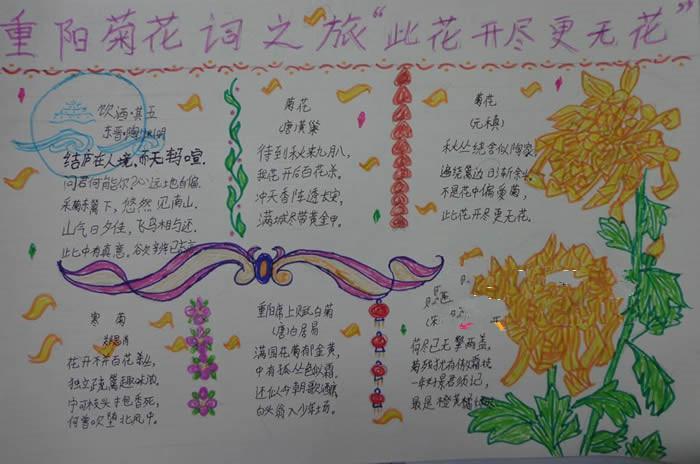 重阳菊花词之旅“此花开尽更无花”
饮酒·其五
东晋·陶渊明
结庐在人境,而无车马喧.
问君何能尔?心远地自偏.
采菊东篱下,悠然见南山.
山气日夕佳,飞鸟相与还.
此中有真意,欲辨已忘言
菊花
(唐)黄巢
待到秋来九月八,
我花开后百花杀.
冲天香阵透长安,
满城尽带黄金甲.
菊花
(元稹)
秋丛绕舍似陶家,
遍绕篱边日渐斜.
不是花中偏爱菊,
此花开尽更无花.
寒菊
郑思肖
花开不并百花丛,
独立疏篱趣味浓,
宁可枝头抱香死,
何曾吹堕北风中.
重阳席上赋白菊
(唐)白居易
满园花菊郁金黄,
中有孤丛色似霜.
还似今朝歌酒席,
白头翁入少年场.
荷尽已无擎雨盖,
菊残犹有傲霜枝
一年好景君须记,
最是橙黄橘绿